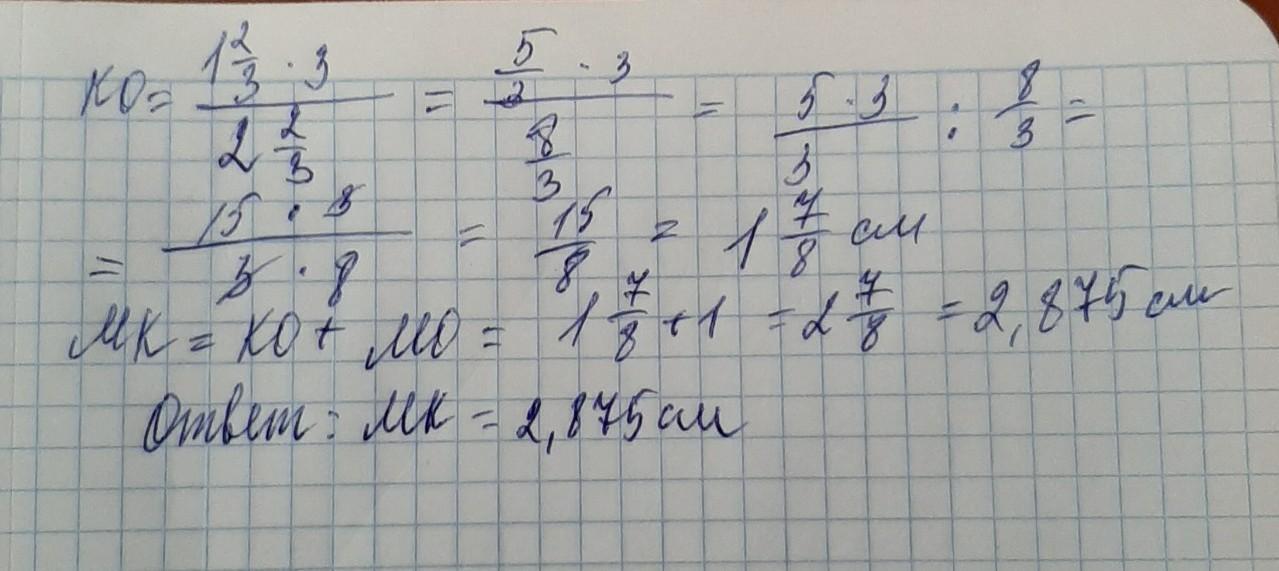 КО = (1 2/3 · 3)/(2 2/3) = (5/3 · 3)/(8/3) = (5 · 3)/3 : 8/3 =
= (15 · 3)/(3 · 8) = 15/8 = 1 7/8 см
МК = КО + МО = 1 7/8 + 1 = 2 7/8 = 2,875 см
Ответ: МК = 2,875 см